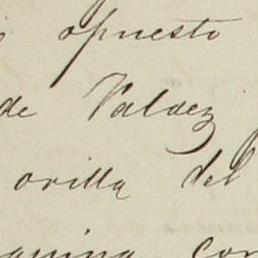 opuesto
de Valdez
orilla del